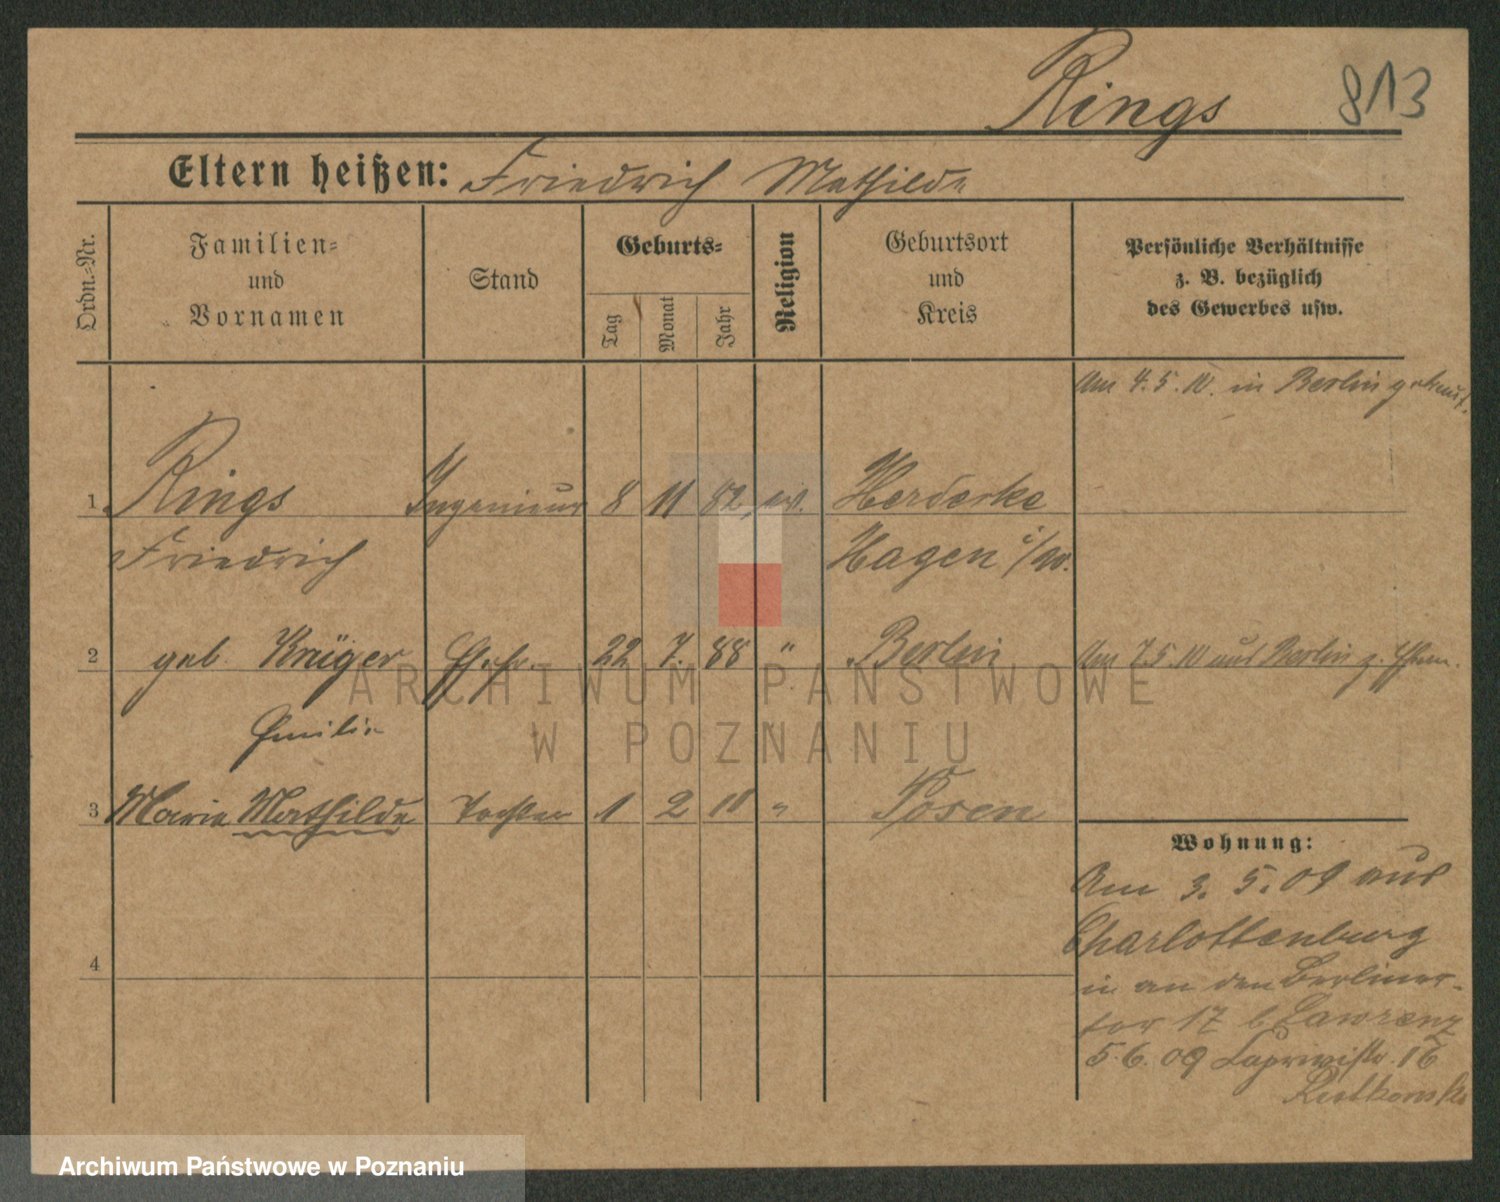 Rings 813
Eltern heißen: Friedrich Mathilde
Ordn.-Nr.
Familien-
und
Vornamen
Stand
Geburts-
Tag
Monat
Jahr
Religion
Geburtsort
und
Kreis
Persönliche Verhältnisse
z. B. bezüglich
des Gewerbes usw.
Am 4.5.10. in Berlin
1 Rings Ingenieur 8 11 82 ev. Herdecke
Friedrich Hagen i/W.
2 geb. Krüger Ehefr. 22 7. 88 " Berlin Am 7.5.10 aus Berlin z. Ehem.
Emilie
3 Marie Mathilde Tochter 1 2 10 " Posen
Wohnung:
Am 3. 5. 09 aus
Charlottenburg
in an den Berliner-
tor 17 b. Lawrenz
5.6.09 Caprivistr. 16
4
ARCHIWUM PAŃSTWOWE
W POZNANIU
Archiwum Państwowe w Poznaniu